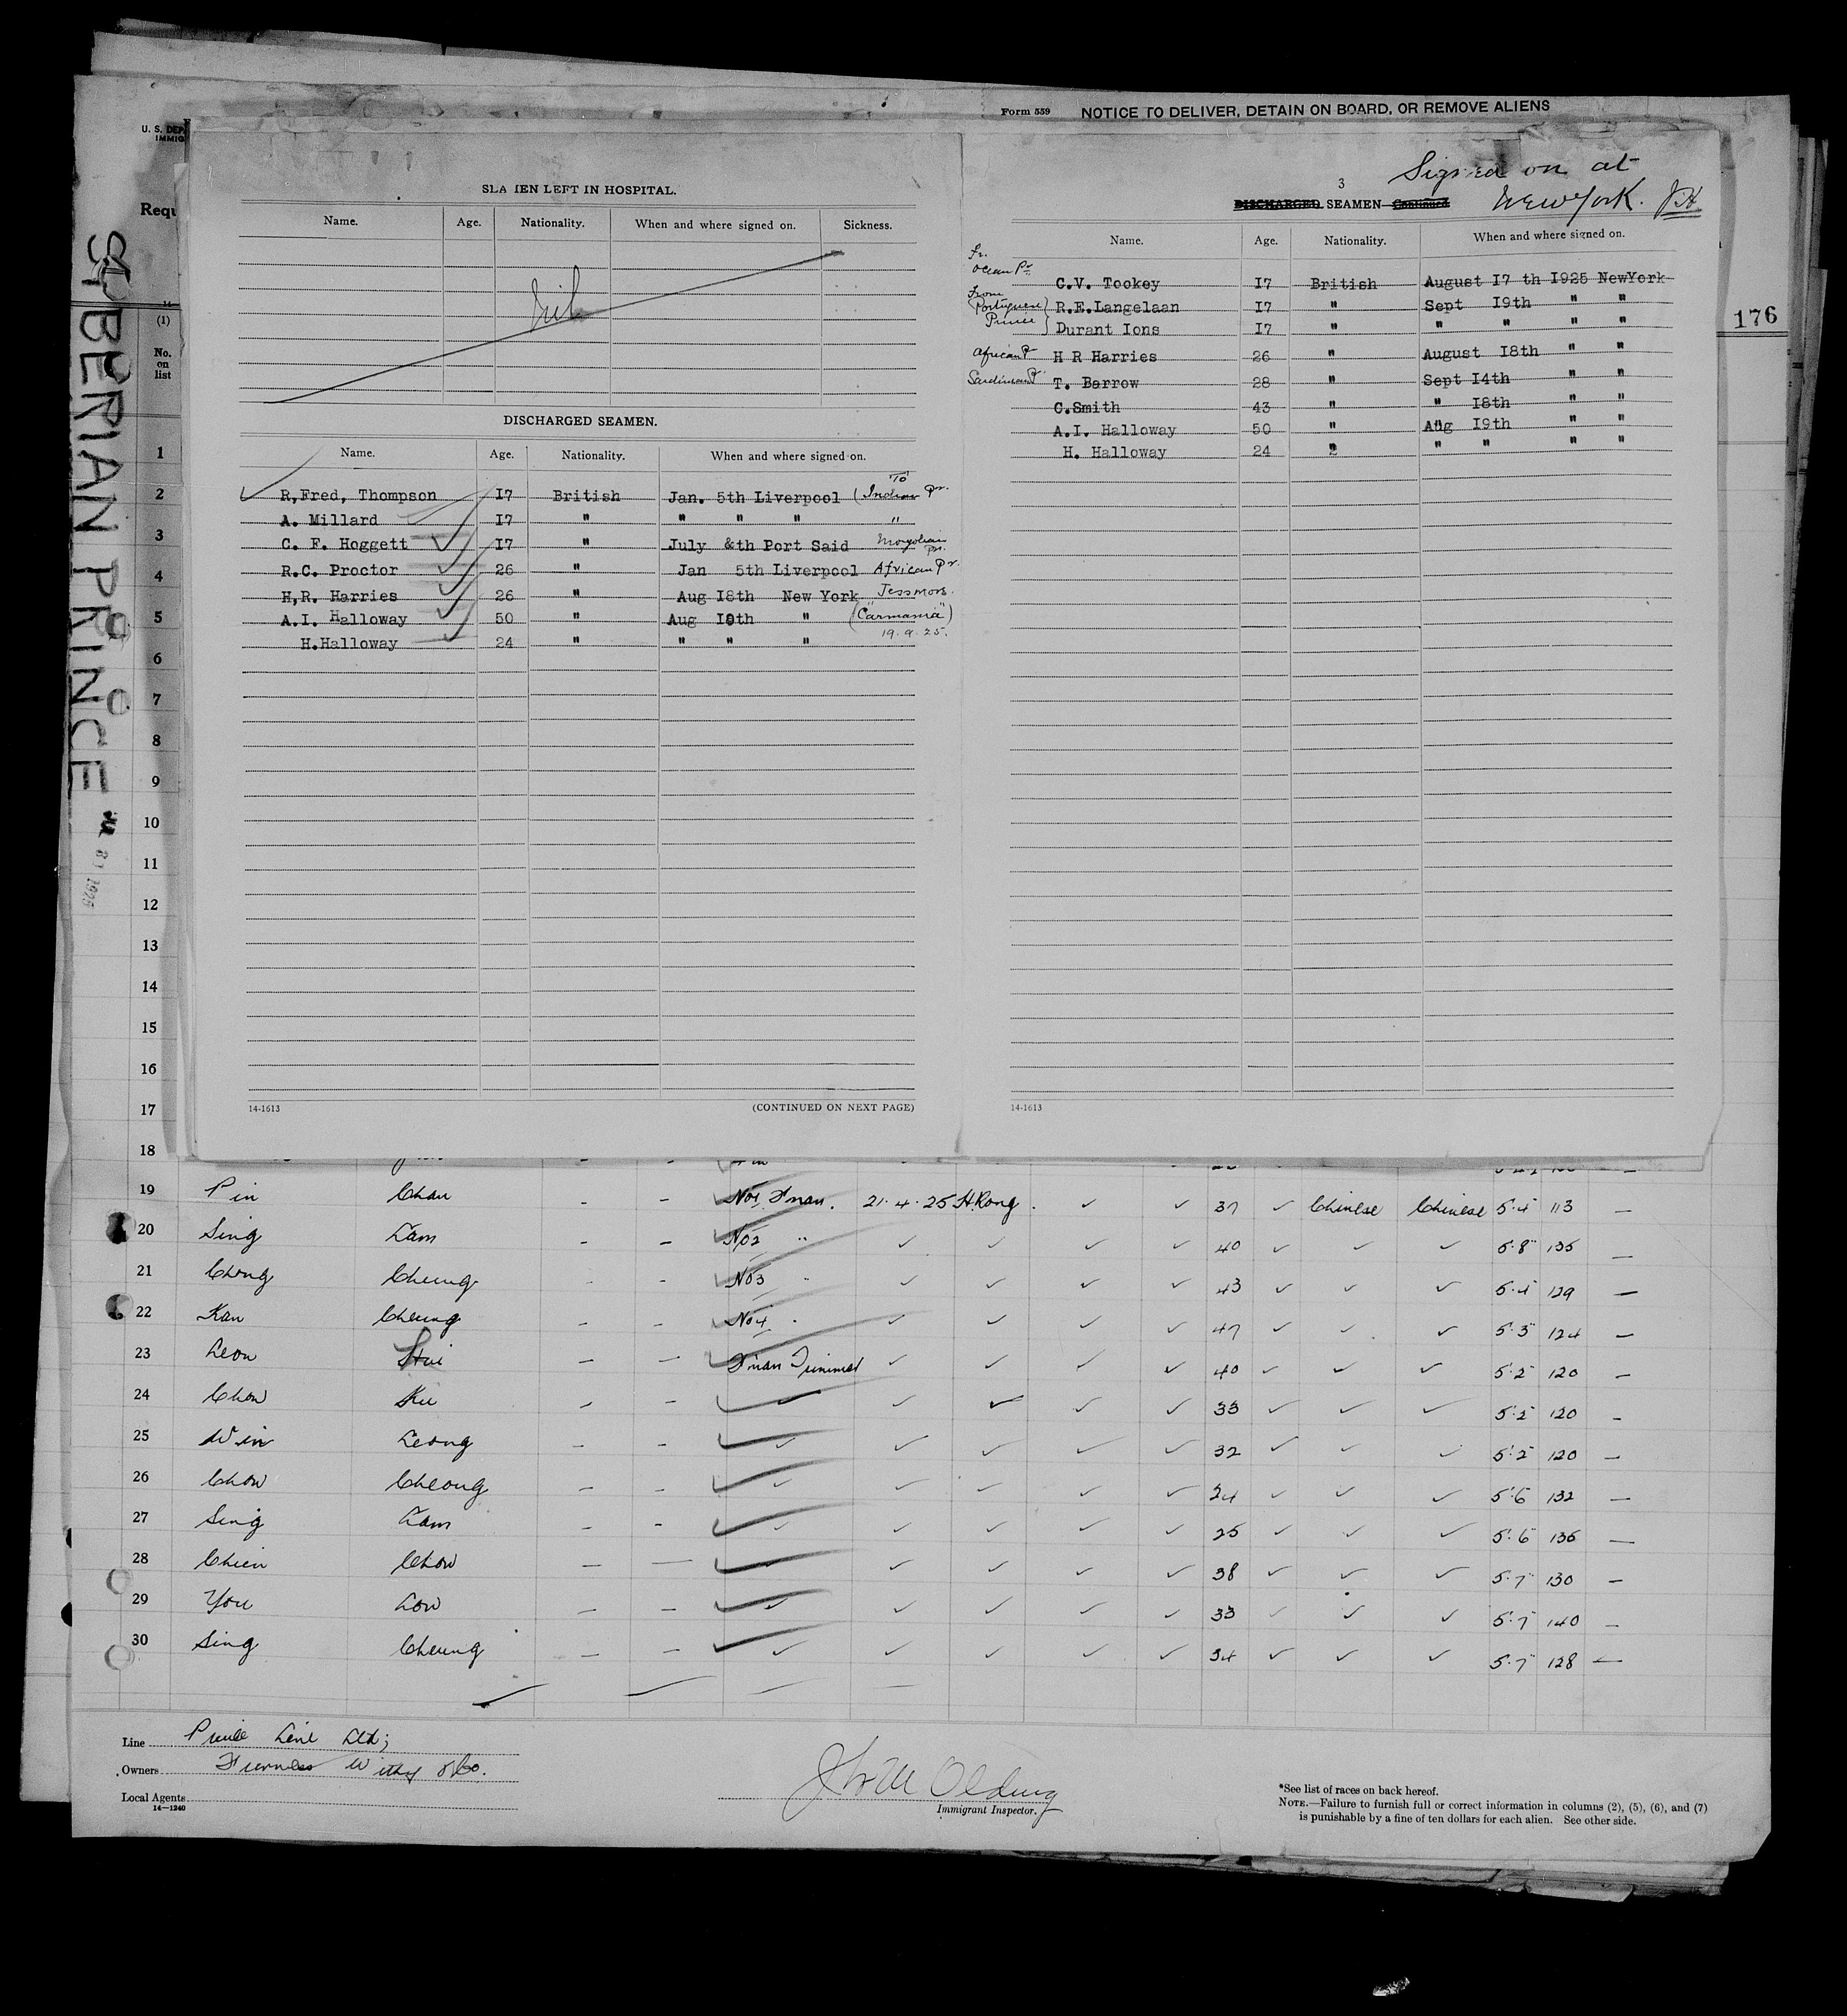 Form 559 NOTICE TO DELIVER, DETAIN ON BOARD, OR REMOVE ALIENS
U. S. DEP
IMMIG
Requ
(1)
No.
on
list
SIBERIAN PRINCE
1925
176
SEAMEN LEFT IN HOSPITAL.
Name. Age. Nationality. When and where signed on. Sickness.
Nil
DISCHARGED SEAMEN.
Name. Age. Nationality. When and where signed on.
To
R,Fred, Thompson I7 British Jan. 5th Liverpool (Indian Pr.
A. Millard I7 " " " " "
C. F. Hoggett I7 " July &th Port Said Mongolian Pr.
R.C. Proctor 26 " Jan 5th Liverpool African Pr.
H,R. Harries 26 " Aug I8th New York Jessmore.
A.I. Halloway 50 " Aug I9th " ("Carmania")
H.Halloway 24 " " " " 19.9.25.
14-1613 (CONTINUED ON NEXT PAGE)
Signed on at
New York. J.H.
3
DISCHARGED SEAMEN—Continued
Name. Age. Nationality. When and where signed on.
Fr.
Ocean Pr. C.V. Tookey I7 British August I7 th I925 NewYork
From
Portuguese R.E.Langelaan I7 " Sept I9th " "
Prince Durant Ions I7 " " " " "
African Pr H R Harries 26 " August I8th " "
Sardinian Pr T. Barrow 28 " Sept I4th " "
C.Smith 43 " " I8th " "
A.I. Halloway 50 " Aug I9th " "
H. Halloway 24 " " " " "
14-1613
1
2
3
4
5
6
7
8
9
10
11
12
13
14
15
16
17
18
19 Pin Chan - - No1 F'man. 21.4.25 H.Kong. ✓ ✓ 37 ✓ Chinese Chinese 5.4 113 —
20 Sing Lam - - No2 " ✓ ✓ ✓ ✓ 40 ✓ ✓ ✓ 5.8" 135 —
21 Chong Cheung - - No3 " ✓ ✓ ✓ ✓ 43 ✓ ✓ ✓ 5.4 129 —
22 Kan Cheung - - No4 " ✓ ✓ ✓ ✓ 47 ✓ ✓ ✓ 5.3" 124 —
23 Leon Hui — — F'man Trimmer ✓ ✓ ✓ ✓ 40 ✓ ✓ ✓ 5.2" 120 —
24 Chow Ku - - ✓ ✓ ✓ ✓ ✓ 33 ✓ ✓ ✓ 5.2" 120 -
25 Win Leong - - ✓ ✓ ✓ ✓ ✓ 32 ✓ ✓ ✓ 5.2" 120 —
26 Chow Cheong - - ✓ ✓ ✓ ✓ ✓ 34 ✓ ✓ ✓ 5.6" 132 —
27 Sing Lam - - ✓ ✓ ✓ ✓ ✓ 25 ✓ ✓ ✓ 5.6" 135 —
28 Chien Chow — — ✓ ✓ ✓ ✓ ✓ 38 ✓ ✓ ✓ 5.7" 130 —
29 You Low — — ✓ ✓ ✓ ✓ ✓ 33 ✓ ✓ ✓ 5.7" 140 —
30 Sing Cheung — — ✓ ✓ ✓ ✓ ✓ 34 ✓ ✓ ✓ 5.7" 128 —
Line Prince Line Ltd;
Owners Furness Withy & Co.
Local Agents
14—1240
Immigrant Inspector.
*See list of races on back hereof.
NOTE.—Failure to furnish full or correct information in columns (2), (5), (6), and (7)
is punishable by a fine of ten dollars for each alien. See other side.